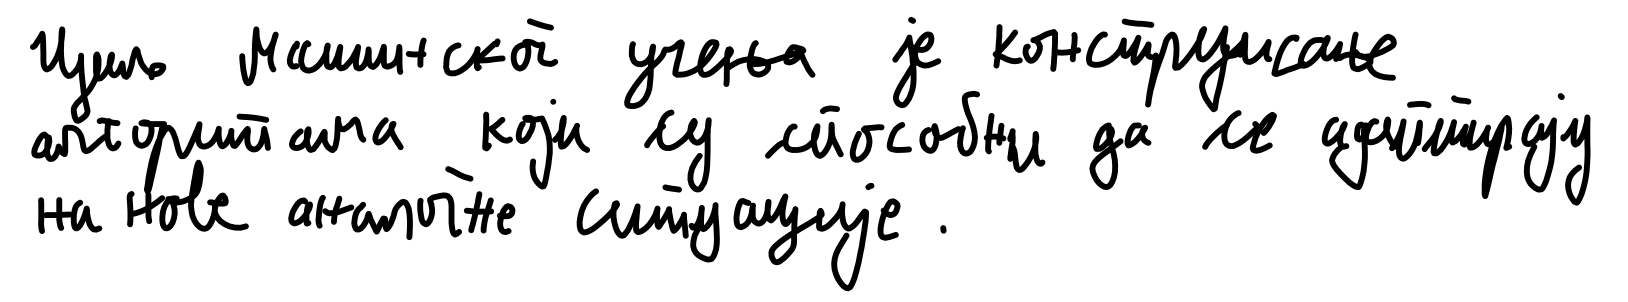 Циљ машинског учења је конструисање
алгоритама који су способни да се адаптирају
на нове аналогне ситуације.